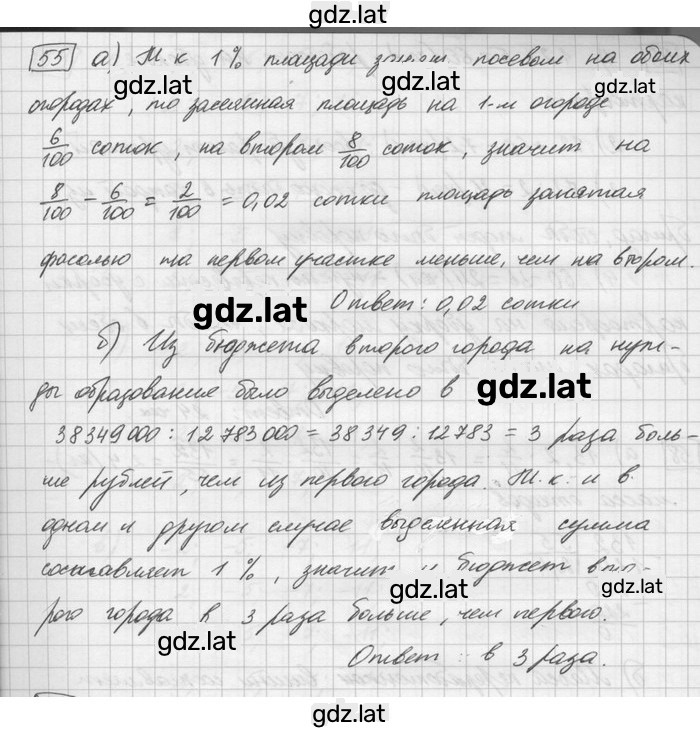 gdz.lat
55 а) Т. к 1% площади занят посевом на обоих
gdz.lat
gdz.lat
огородах, то засеянная площадь на 1-м огороде
6/100 соток, на втором 8/100 соток, значит на
8/100 - 6/100 = 2/100 = 0,02 сотки площадь занятая
фасолью на первом участке меньше, чем на втором.
gdz.lat
Ответ: 0,02 сотки
б) Из бюджета второго города на нуж-
ды образование было выделено в
gdz.lat
38349000 : 12783000 = 38349 : 12783 = 3 раза боль-
ше рублей, чем из первого города. Т. к. и в
одном и другом случае выделенная сумма
составляет 1%, значит и бюджет вто-
gdz.lat
рого города в 3 раза больше, чем первого.
gdz.lat
Ответ: в 3 раза.
gdz.lat